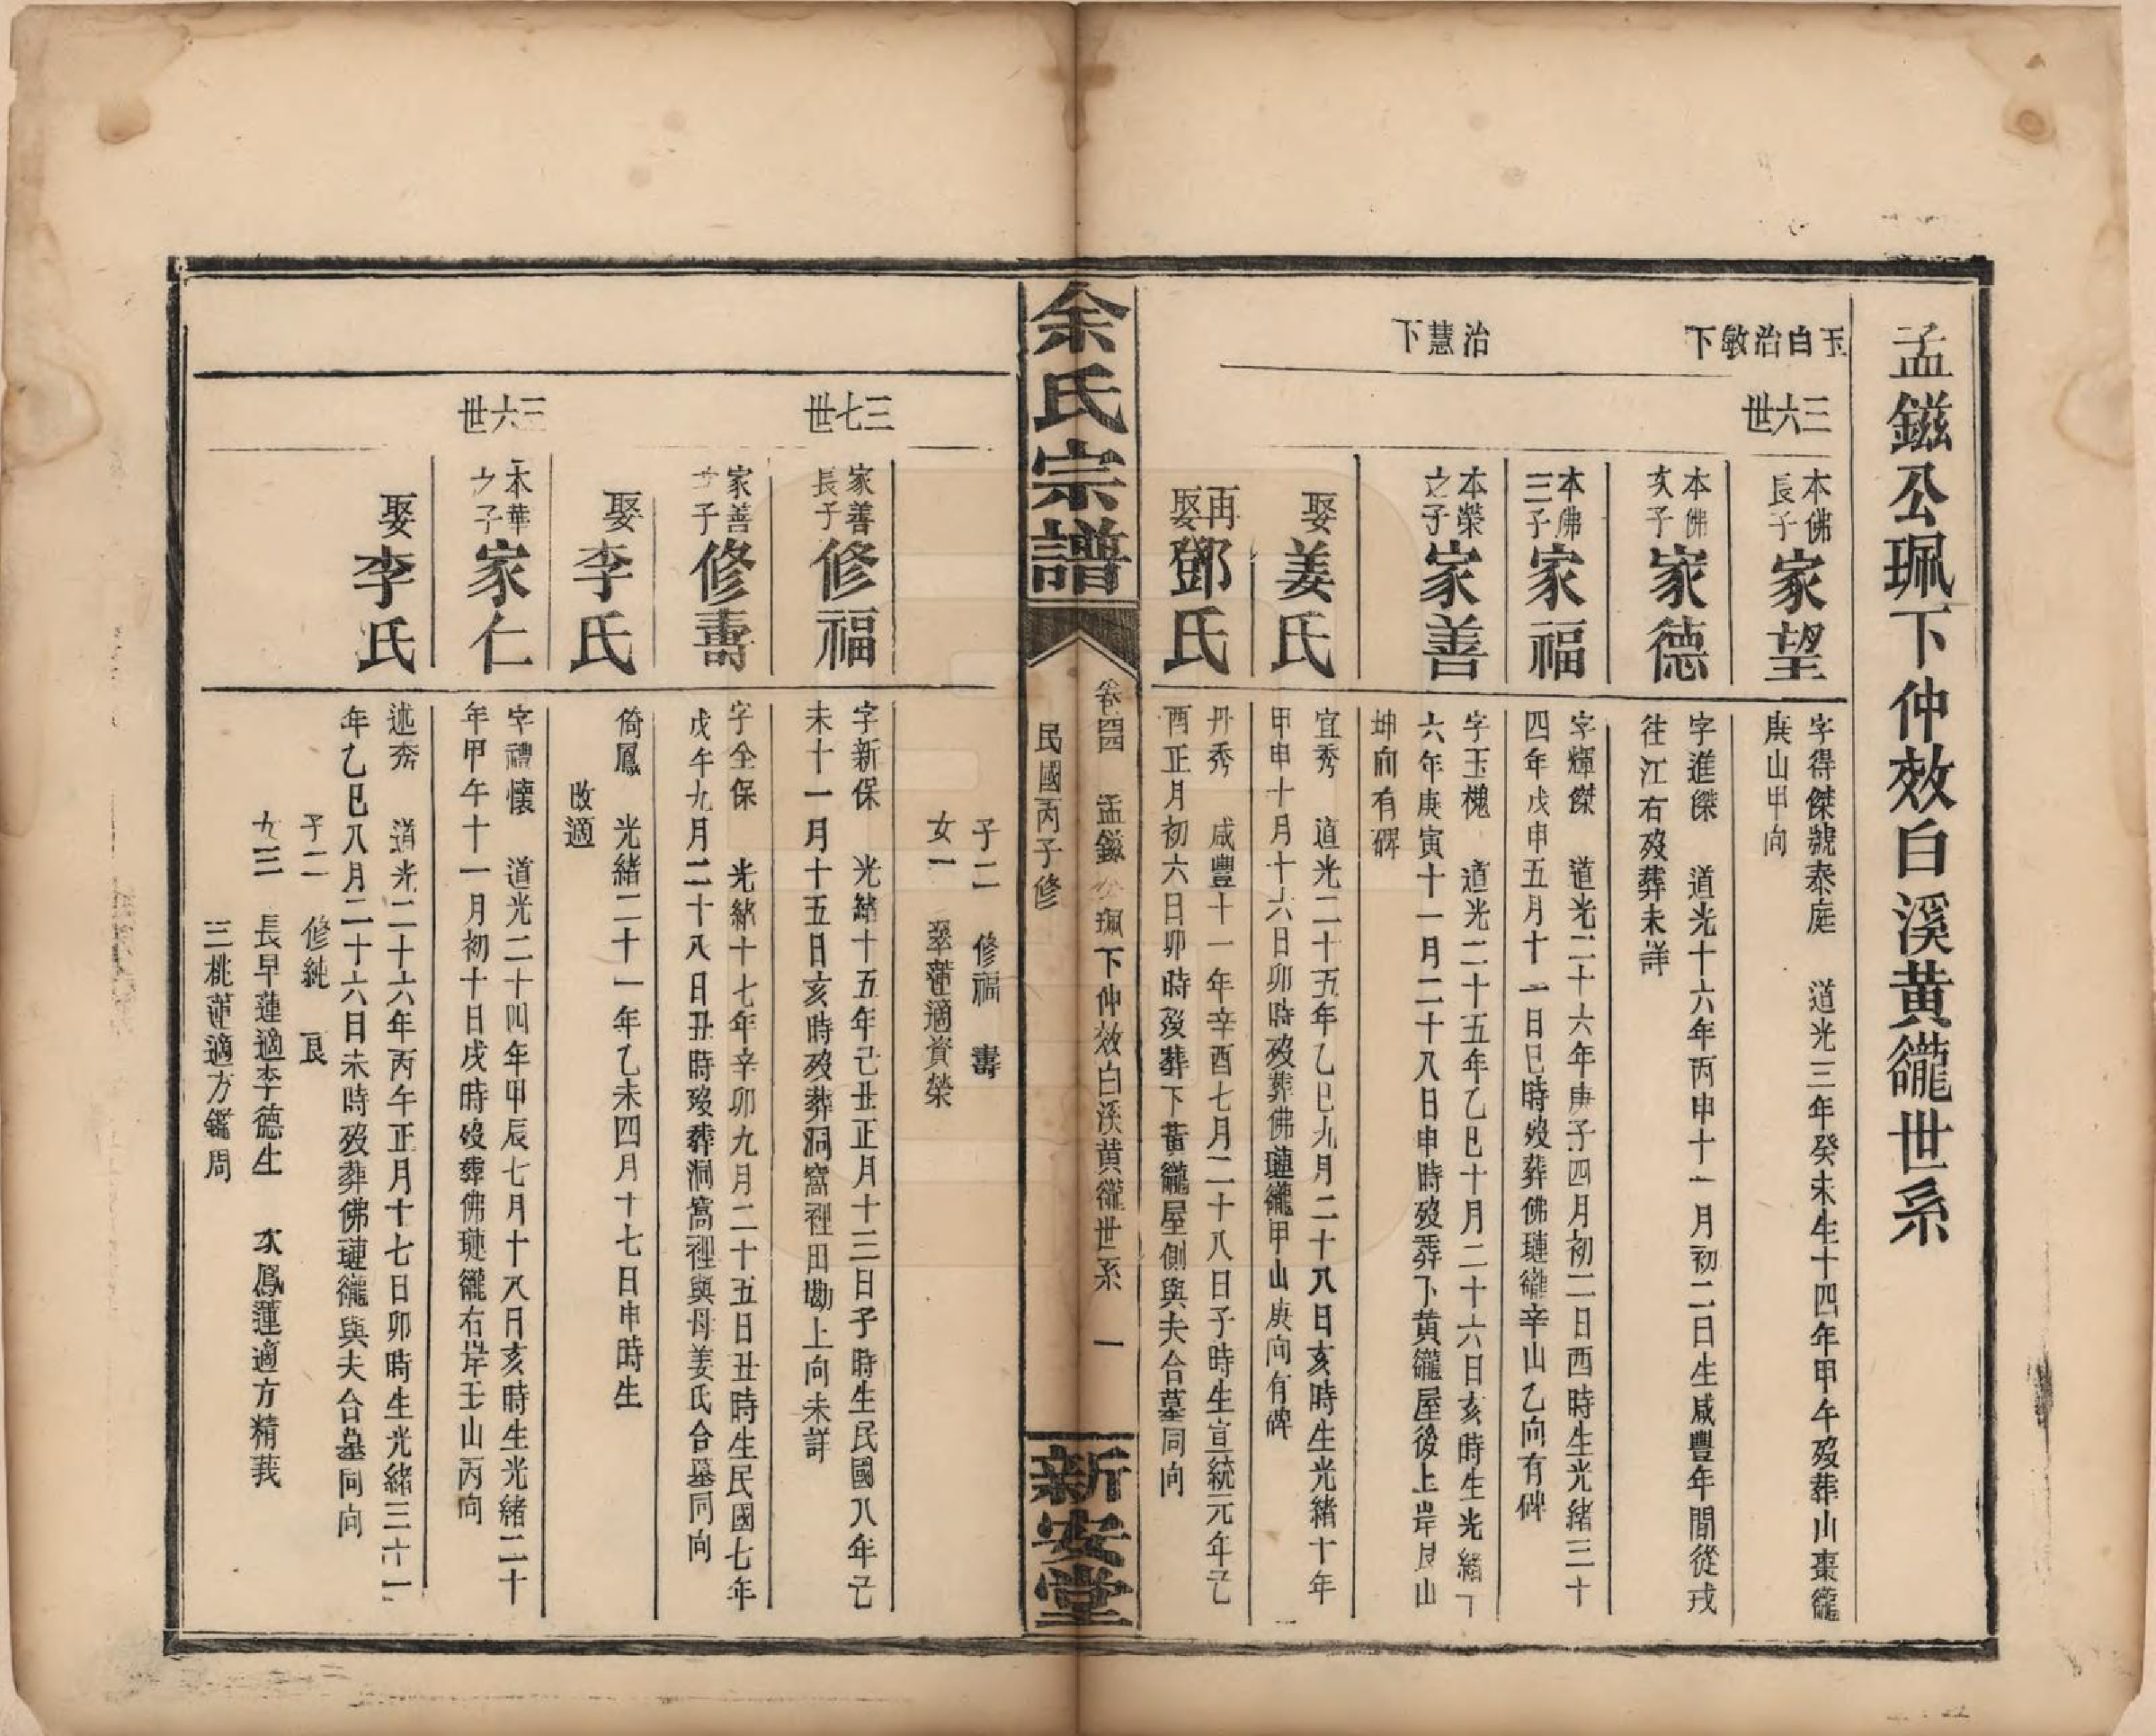 孟鎡公珮下仲效白溪黄徿世系
玉白治敏下
三六世
本佛長子 家望
字得傑號泰庭 道光三年癸未生十四年甲午歿葬山棗徿
庚山甲向
本佛次子 家德
字進傑 道光十六年丙申十一月初二日生咸豐年間從戎
往江右歿葬未詳
本佛三子 家福
字輝傑 道光二十六年庚子四月初二日酉時生光緒三十
四年戊申五月十一日巳時歿葬佛璉徿辛山乙向有碑
治慧下
本榮之子 家善
字玉槐 道光二十五年乙巳十月二十六日亥時生光緒十
六年庚寅十一月二十八日申時歿葬下黄徿屋後上岸艮山
坤向有碑
娶 姜氏
宜秀 道光二十五年乙巳九月二十八日亥時生光緒十年
甲申十月十六日卯時歿葬佛璉徿甲山庚向有碑
再娶 鄧氏
丹秀 咸豐十一年辛酉七月二十八日子時生宣統元年己
酉正月初六日卯時歿葬下黄徿屋側與夫合墓同向
余氏宗譜
卷四 孟鎡公珮下仲效白溪黄徿世系 一
民國丙子修
新安堂
子二 修福 壽
女一 翠蓮適資榮
三七世
家善長子 修福
字新保 光緒十五年己丑正月十三日子時生民國八年己
未十一月十五日亥時歿葬洞窩裡田墈上向未詳
家善次子 修壽
字全保 光緒十七年辛卯九月二十五日丑時生民國七年
戊午九月二十八日丑時歿葬洞窩裡與母姜氏合墓同向
娶 李氏
倚鳳 光緒二十一年乙未四月十七日申時生
改適
三六世
本華之子 家仁
字禮懷 道光二十四年甲辰七月十八日亥時生光緒二十
年甲午十一月初十日戌時歿葬佛璉徿右岸壬山丙向
娶 李氏
述秀 道光二十六年丙午正月十七日卯時生光緒三十一
年乙巳八月二十六日未時歿葬佛璉徿與夫合墓同向
子二 修純 良
女三 長早蓮適李德生 次鳳蓮適方精義
三桃蓮適方鑑周